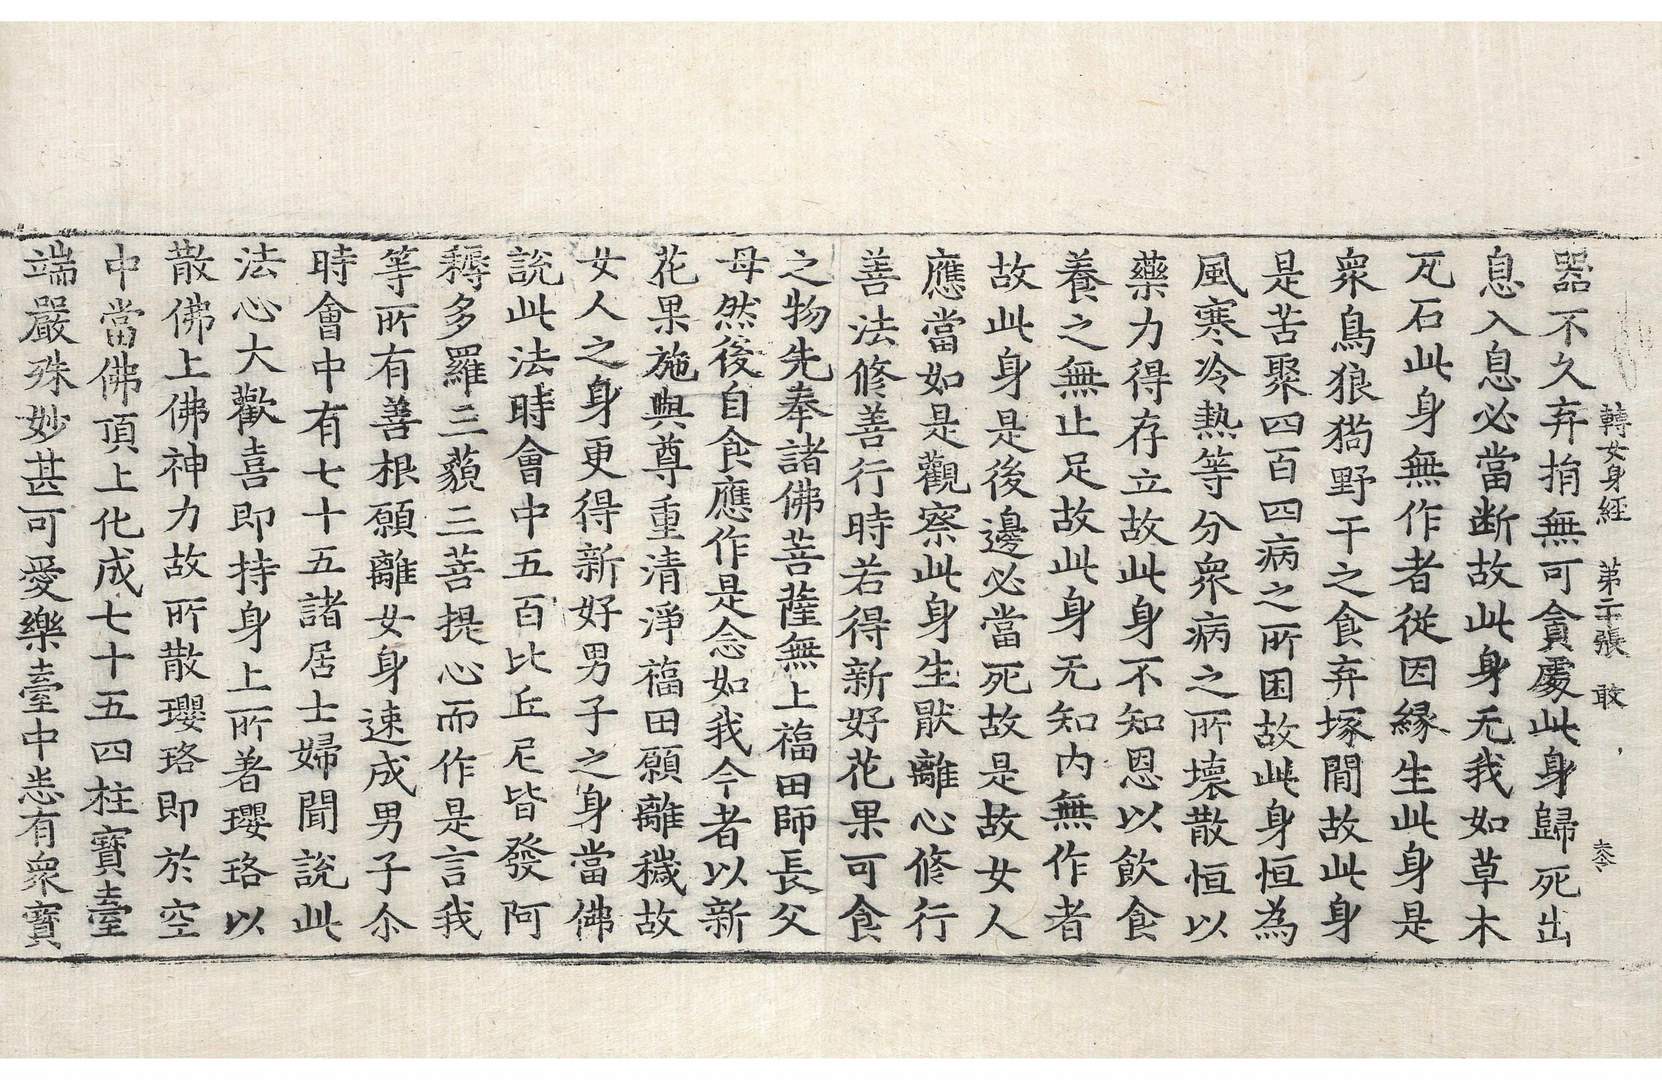 轉女身經 第二十張 敢
器不久弃捐無可貪處此身歸死出
息入息必當断故此身无我如草木
瓦石此身無作者從因緣生此身是
衆鳥狼㺃野干之食弃塚間故此身
是苦聚四百四病之所困故此身恒為
風寒冷熱等分衆病之所壞散恒以
藥力得存立故此身不知恩以飲食
養之無止足故此身无知內無作者
故此身是後邊必當死故是故女人
應當如是觀察此身生猒離心修行
善法修善行時若得新好花果可食
之物先奉諸佛菩薩無上福田師長父
母然後自食應作是念如我今者以新
花果施與尊重清淨福田願離穢故
女人之身更得新好男子之身當佛
說此法時會中五百比丘尼皆發阿
耨多羅三藐三菩提心而作是言我
等所有善根願離女身速成男子尒
時會中有七十五諸居士婦聞說此
法心大歡喜即持身上所著瓔珞以
散佛上佛神力故所散瓔珞即於空
中當佛頂上化成七十五四柱寶臺
端嚴殊妙甚可愛樂臺中悉有衆寶